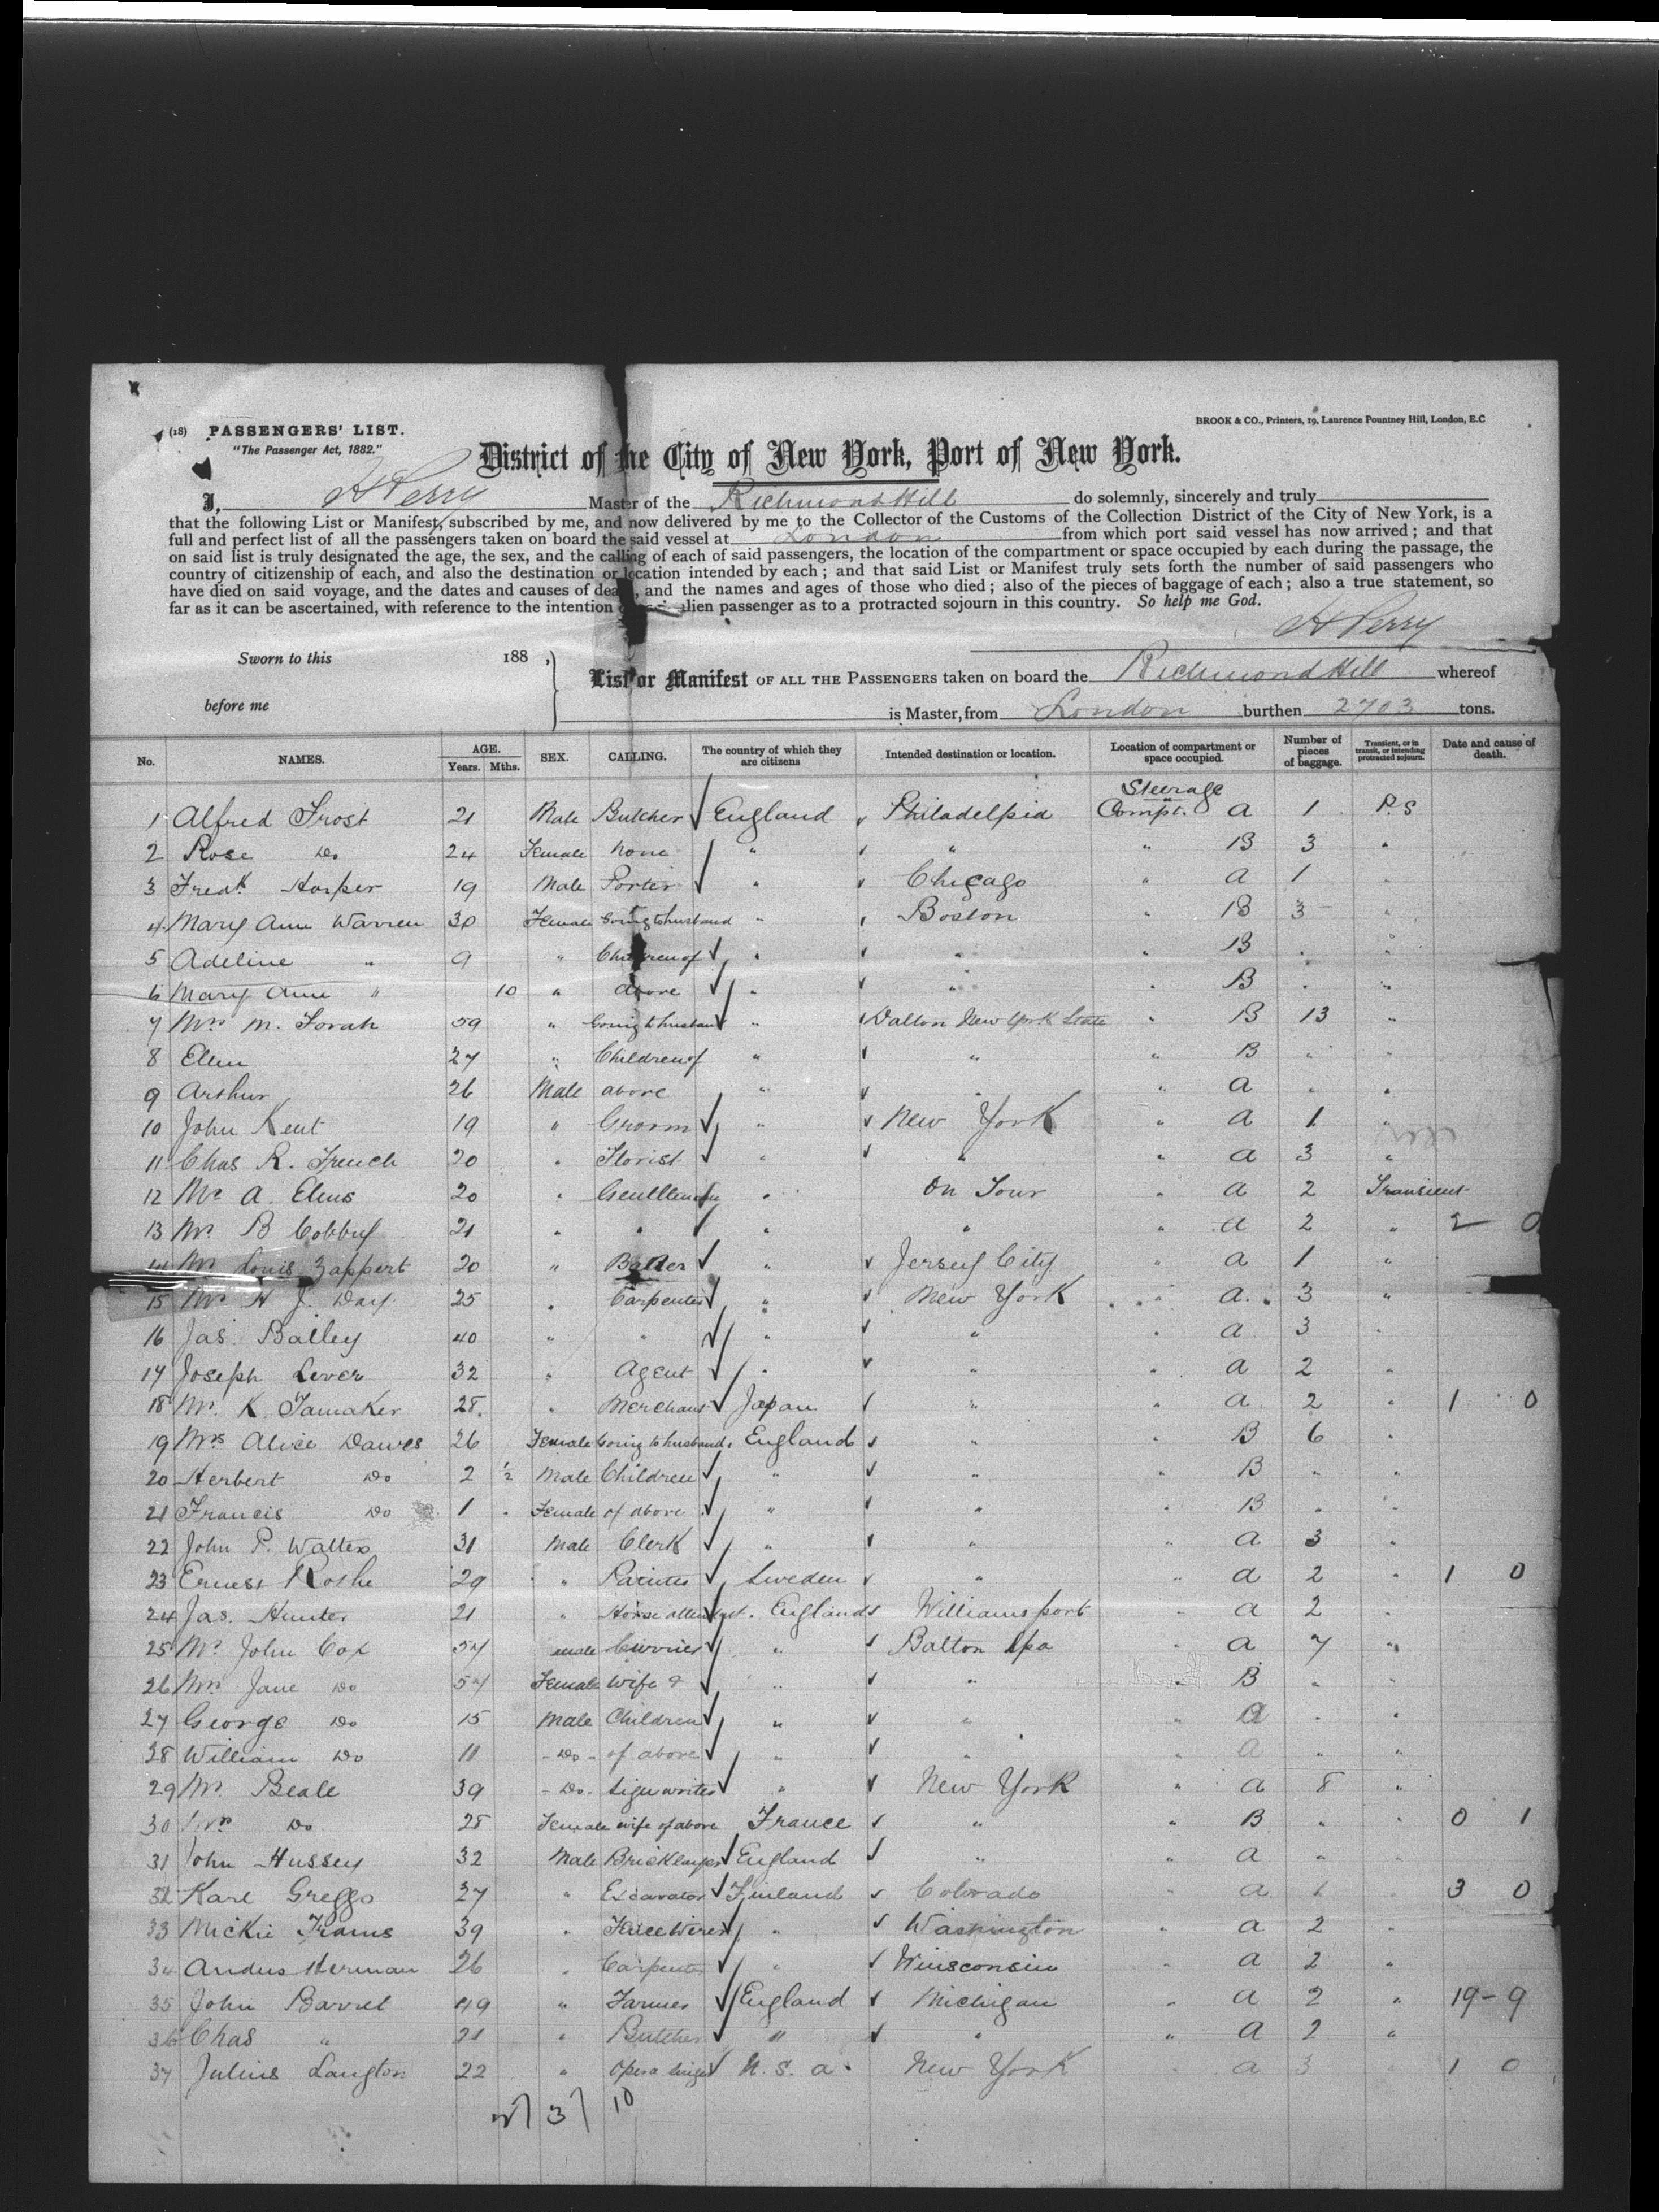 (18) PASSENGERS' LIST.
BROOK & CO., Printers, 19, Laurence Pountney Hill, London, E.C
"The Passenger Act, 1882."
District of the City of New York, Port of New York.
I, H Perry Master of the Richmond Hill do solemnly, sincerely and truly
that the following List or Manifest, subscribed by me, and now delivered by me to the Collector of the Customs of the Collection District of the City of New York, is a
full and perfect list of all the passengers taken on board the said vessel at London from which port said vessel has now arrived; and that
on said list is truly designated the age, the sex, and the calling of each of said passengers, the location of the compartment or space occupied by each during the passage, the
country of citizenship of each, and also the destination or location intended by each; and that said List or Manifest truly sets forth the number of said passengers who
have died on said voyage, and the dates and causes of death, and the names and ages of those who died; also of the pieces of baggage of each; also a true statement, so
far as it can be ascertained, with reference to the intention alien passenger as to a protracted sojourn in this country. So help me God.
H Perry
Sworn to this 188 ,
before me
List or Manifest OF ALL THE PASSENGERS taken on board the Richmond Hill whereof
is Master, from London burthen 2703 tons.
No. NAMES. AGE. Years. Mths. SEX. CALLING. The country of which they are citizens Intended destination or location. Location of compartment or space occupied. Number of pieces of baggage. Transient, or in transit, or intending protracted sojourn. Date and cause of death.
Steerage
1 Alfred Frost 21 Male Butcher England Philadelpia Compt. A 1 P.S
2 Rose Do 24 Female None " " " B 3 "
3 Fredk Harper 19 Male Porter " Chicago " A 1 "
4 Mary Ann Warren 30 Female Going to husband " Boston " B 3 "
5 Adeline " 9 " Children of " " " B " "
6 Mary Ann " 10 " above " " " B " "
7 Mrs M. Forah 59 " Going to husband " Dalton New York State " B 13 "
8 Ellen 27 " Children of " " " B " "
9 Arthur 26 Male above " " " A " "
10 John Kent 19 " Groom " New York " A 1 "
11 Chas R. French 20 " Florist " " " A 3 "
12 Mr A. Elms 20 " Gentleman " On Tour " A 2 Transient
13 Mr B Cobbey 21 " " " " " A 2 " 2 0
14 Mr Louis Zappert 20 " Baker " Jersey City " A 1 "
15 Mr H J. Day 25 " Carpenter " New York " A 3 "
16 Jas. Bailey 40 " " " " " A 3 "
17 Joseph Lever 32 " Agent " " " A 2 "
18 Mr. K. Tamaker 28 " Merchant Japan " " A 2 " 1 0
19 Mrs Alice Dawes 26 Female Going to husband England " " B 6 "
20 Herbert Do 2 1/2 Male Children " " " B " "
21 Francis Do 1 Female of above " " " B " "
22 John P. Walter 31 Male Clerk " " " A 3 "
23 Ernest Rothe 29 " Painter Sweden " " A 2 " 1 0
24 Jas. Hunter 21 " Horse attendant. England Williamsport " A 2 "
25 Mr John Cox 54 male Currier " Balton Spa " A 7 "
26 Mrs Jane Do 54 Female Wife & " " " B " "
27 George Do 15 Male Children " " " A " "
28 William Do 11 - Do - of above " " " A " "
29 Mr. Beale 39 - Do - Sign writer " New York " A 8 "
30 Mrs Do 28 Female wife of above France " " B " " 0 1
31 John Hussey 32 Male Bricklayer England " " A " "
32 Karl Greggo 27 " Excavator Finland Colorado " A 1 " 3 0
33 Mickie Frams 39 " " Washington " A 2 "
34 Andus Herman 26 " Carpenter " Winsconsin " A 2 "
35 John Barret 49 " Farmer England Michigan " A 2 " 19 - 9
36 Chas " 21 " Butcher " " " A 2 "
37 Julius Langton 22 " Opera singer U. S. A. New York " A 3 " 1 0
37 10